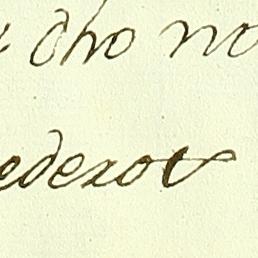 dho no
ederos